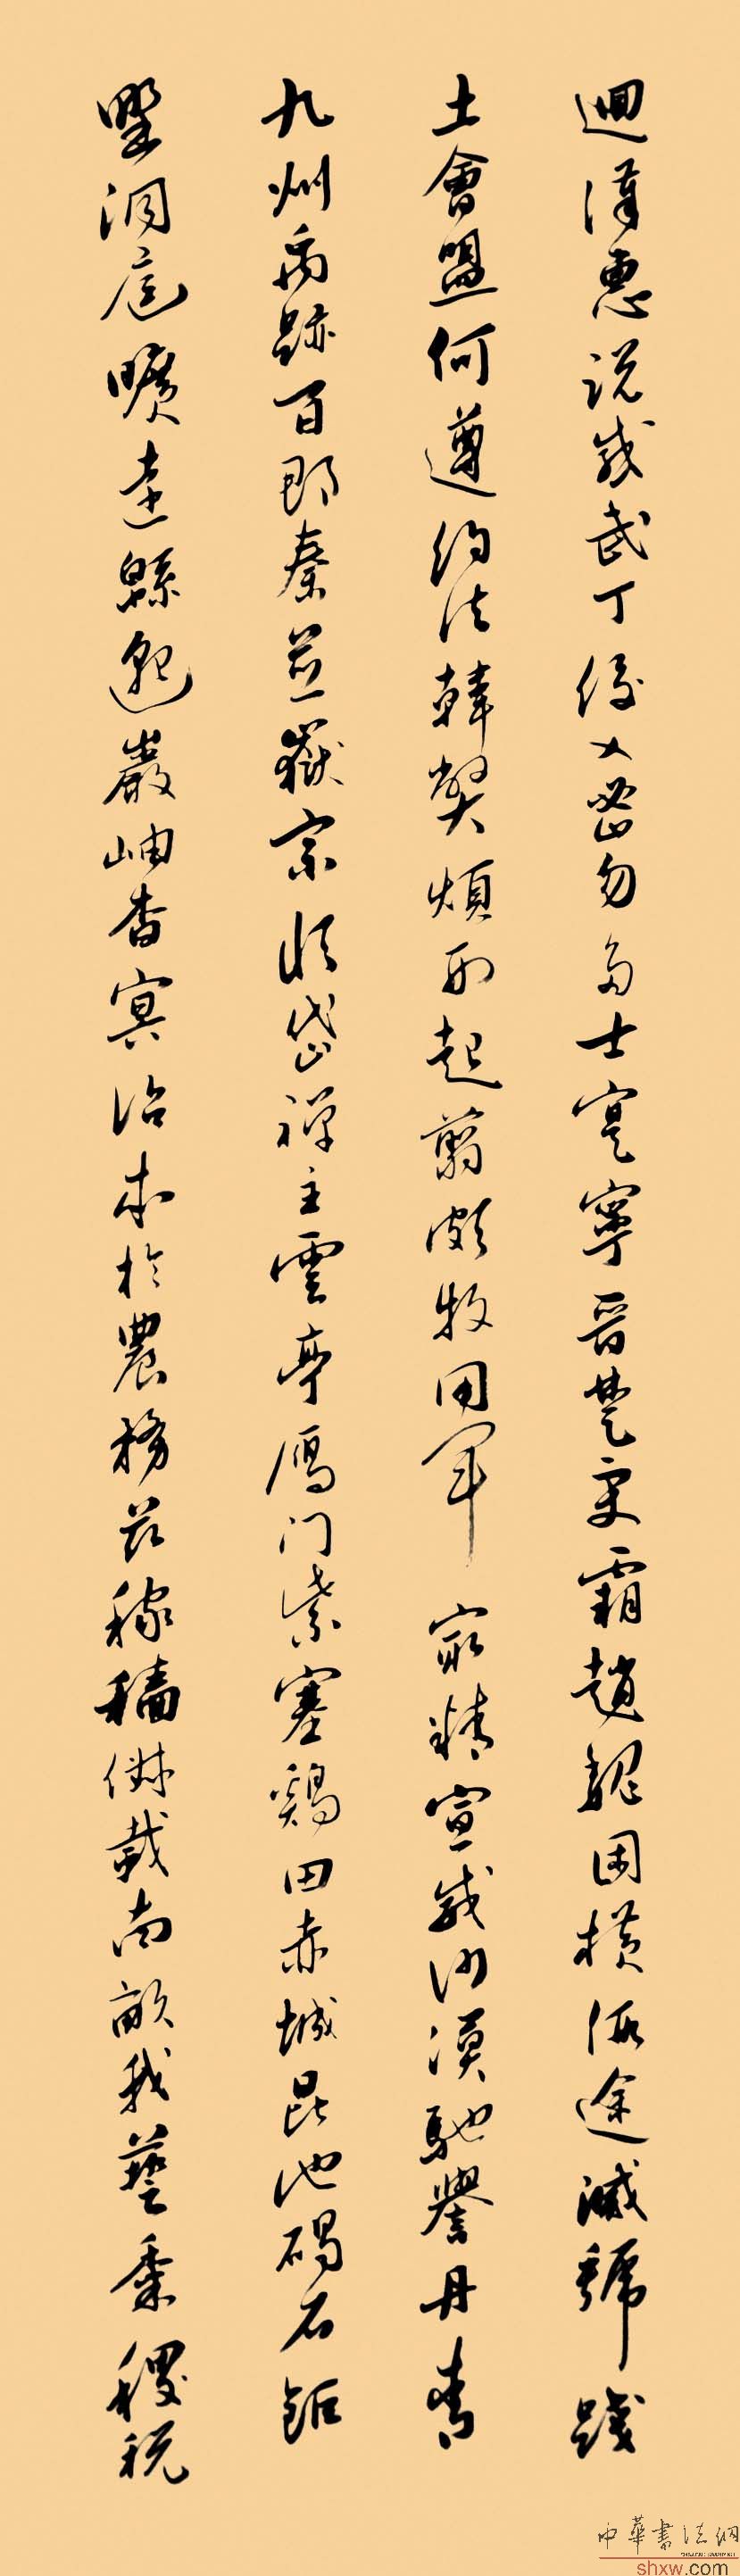 迴漢惠說感武丁俊乂密勿多士寔寧晉楚更霸趙魏困橫假途滅虢踐
土會盟何遵約法韓弊煩刑起翦頗牧用軍最精宣威沙漠馳譽丹青
九州禹跡百郡秦並嶽宗恆岱禪主雲亭雁门紫塞鷄田赤城昆池碣石鉅
野洞庭曠遠緜邈巖岫杳冥治本於農務茲稼穡俶載南畝我藝黍稷稅
中華書法網
shxw.com